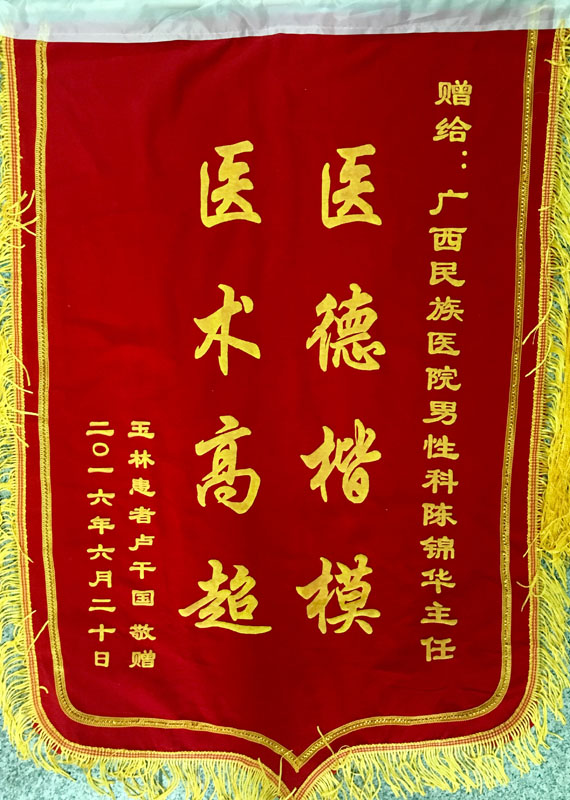 赠给：广西民族医院男性科陈锦华主任
医德楷模
医术高超
玉林患者卢干国 敬赠
二〇一六年六月二十日